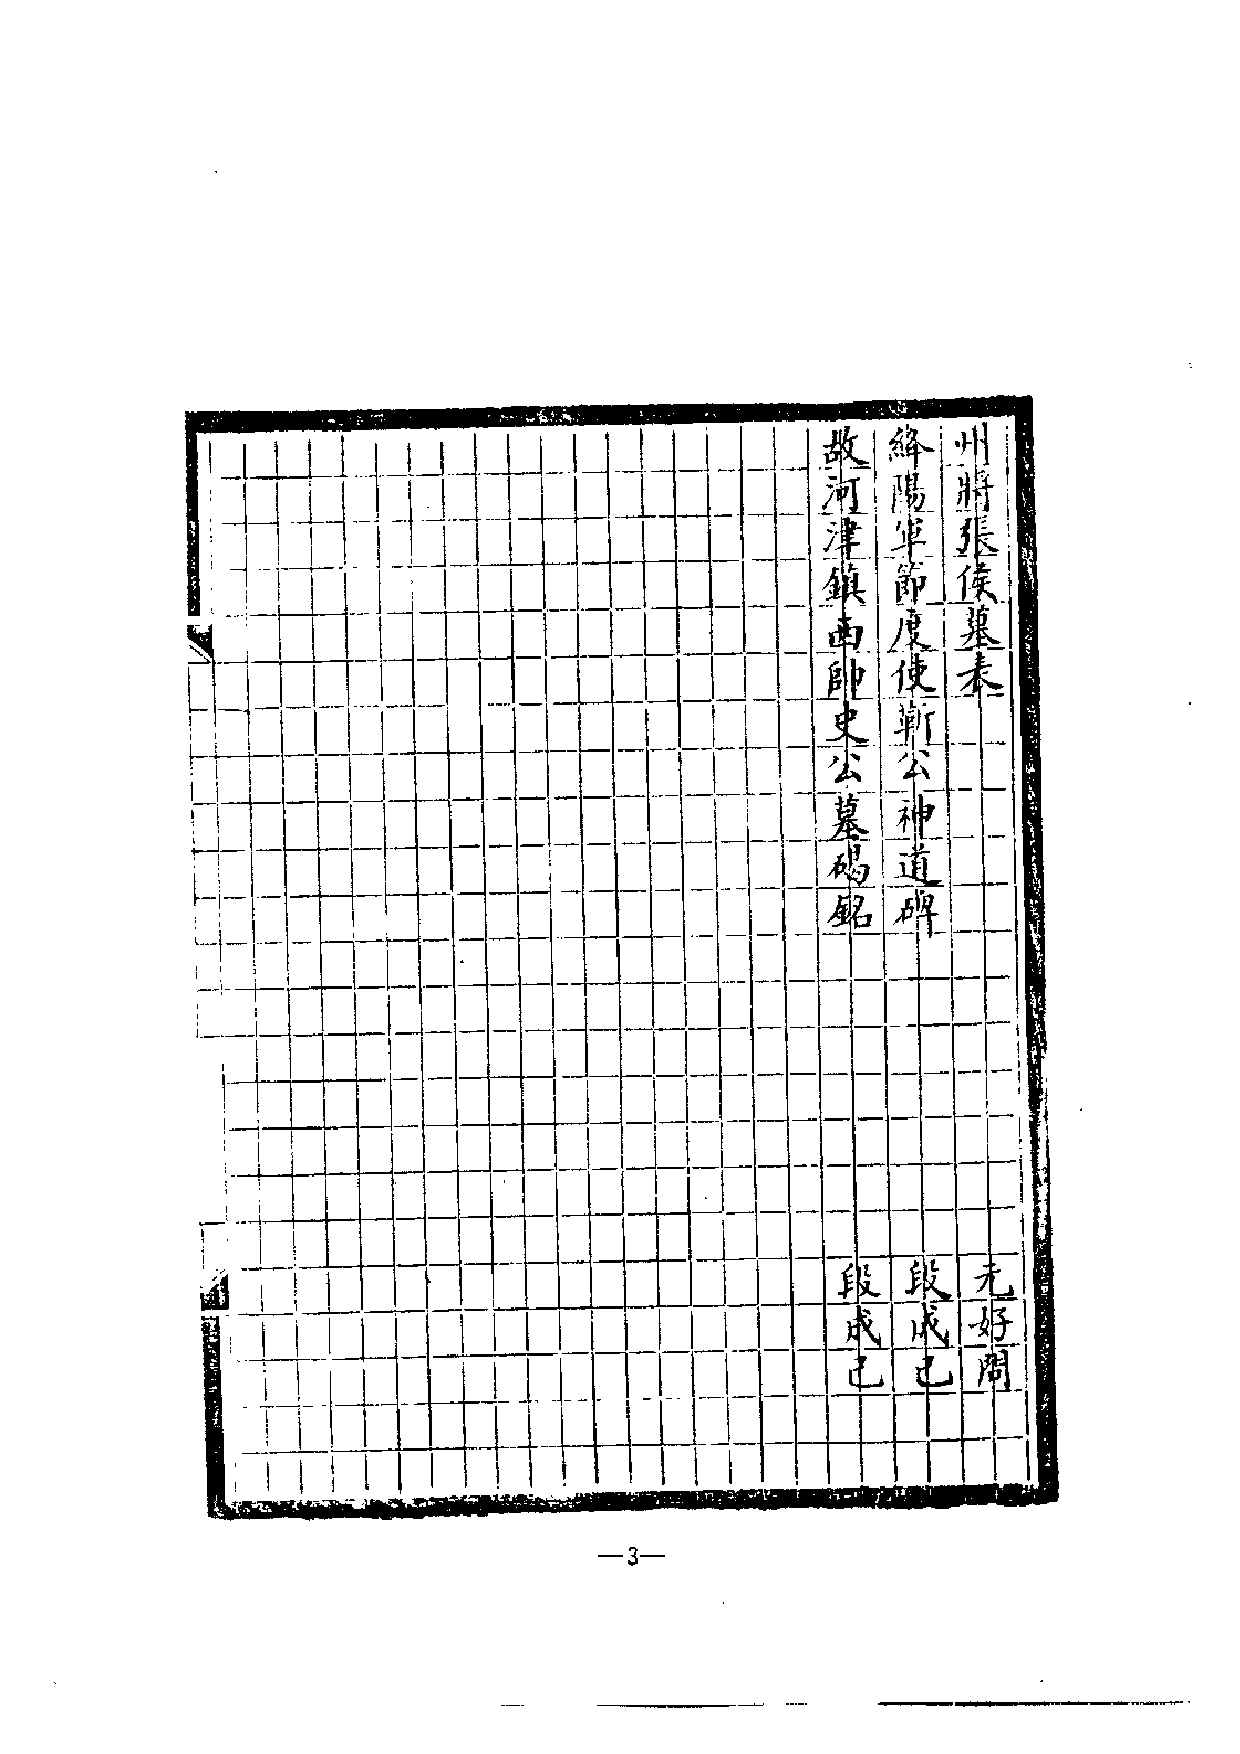 州將張侯墓表　元好問
絳陽軍節度使靳公神道碑　段成己
故河津鎮西帥史公墓碣銘　段成己
—3—